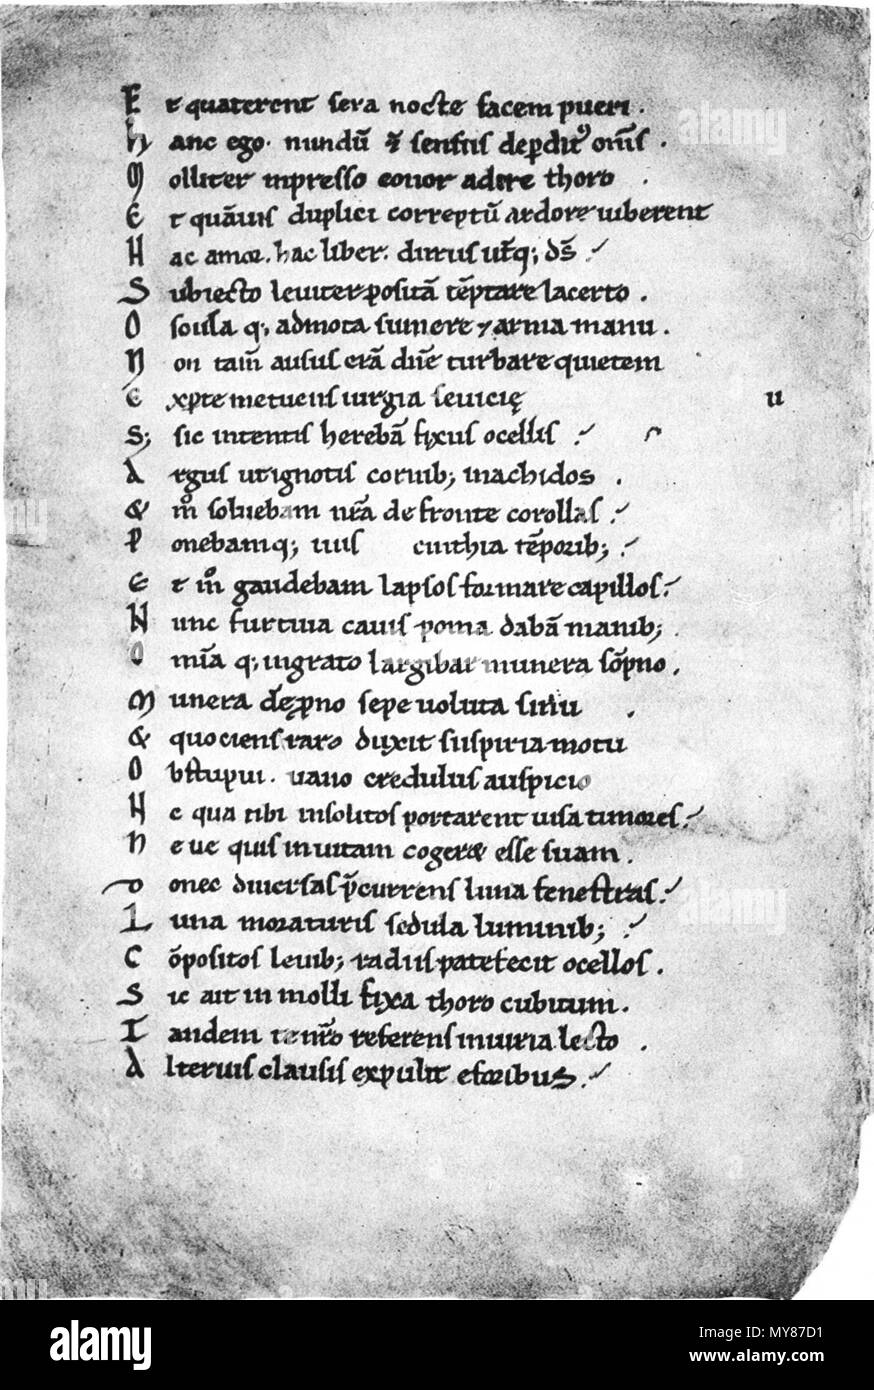 E t quaterent sera nocte facem pueri .
h anc ego . nundū & sensus depdit᷒ om̄s .
M olliter inpresso conor adire thoro .
E t quāuis duplici correptū ardore iuberent
H ac amor . hac liber . durus utq; ds̄
S ubiecto leuiter positā tēptare lacerto .
O scula q; admota sumere & arma manu .
N on tam̄ ausus erā dn̄e turbare quietem
E xpte metuens iurgia seuicię u
S; sic intentis herebā fixus ocellis
A rgus ut ignotis cornib; inachidos .
& m° soluebam nr̄a de fronte corollas
P onebamq; tuis cinthia tēporib;
E t m° gaudebam lapsos formare capillos
N unc furtiua cauis poma dabā manib; .
O mīa q; ingrato largibar munera sōpno .
M unera de pno sepe uoluta sinu .
& quociens raro duxit suspiria motu
O bstupui . uano credulus auspicio
N e qua tibi insolitos portarent uisa timores
N eue quis inuitam cogeret esse suam .
D onec diuersas pcurrens luna fenestras
L una moraturis sedula luminib;
C ōpositos leuib; radiis patefecit ocellos .
S ic ait in molli fixa thoro cubitum .
T andem te nr̄o referens iniuria lecto .
A lterius clausis expulit e foribus
alamy
Image ID: MY87D1
www.alamy.com